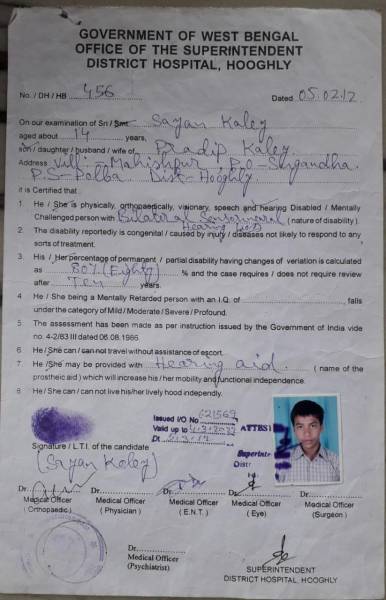 GOVERNMENT OF WEST BENGAL
OFFICE OF THE SUPERINTENDENT
DISTRICT HOSPITAL, HOOGHLY
No. / DH / HB 456 Dated 05.02.12
On our examination of Sri / Smt. Sayan Koley
aged about 14 years,
son / daughter / husband / wife of Pradip Koley
Address Vill-Mahishpur P.O-Sugandha
P.S-Polba Dist-Hooghly.
it is Certified that :
1. He / She is physically, orthopaedically, visionary, speech and hearing Disabled / Mentally
Challenged person with Bilateral Sensorineural (nature of disability).
Hearing loss
2. The disability reportedly is congenital / caused by injury / diseases not likely to respond to any
sorts of treatment.
3. His / Her percentage of permanent / partial disability having changes of variation is calculated
as 80% (Eighty) % and the case requires / does not require review
after Ten years.
4. He / She being a Mentally Retarded person with an I.Q. of falls
under the category of Mild / Moderate / Severe / Profound.
5. The assessment has been made as per instruction issued by the Government of India vide
no. 4-2/83 III dated 06.08.1986.
6. He /She can / can not travel without assistance of escort.
7. He /She may be provided with Hearing aid. (name of the
prostheic aid ) which will increase his / her mobility and functional independence.
8. He / She can / Can not live his/her lively hood independently.
Issued I/O No 621569
Valid up to
Dt
ATTES
Superint
Distr
Signature / L.T.I. of the candidate
(Sayan Koley)
Dr. Dr. Dr. Dr. Dr.
Medical Officer Medical Officer Medical Officer Medical Officer Medical Officer
( Orthopaedic ) ( Physician ) ( E.N.T. ) ( Eye ) (Surgeon )
Dr.
Medical Officer
(Psychiatrist)
SUPERINTENDENT
DISTRICT HOSPITAL, HOOGHLY